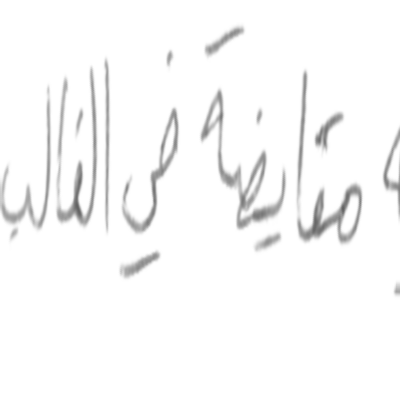 مقايضة في الغالب